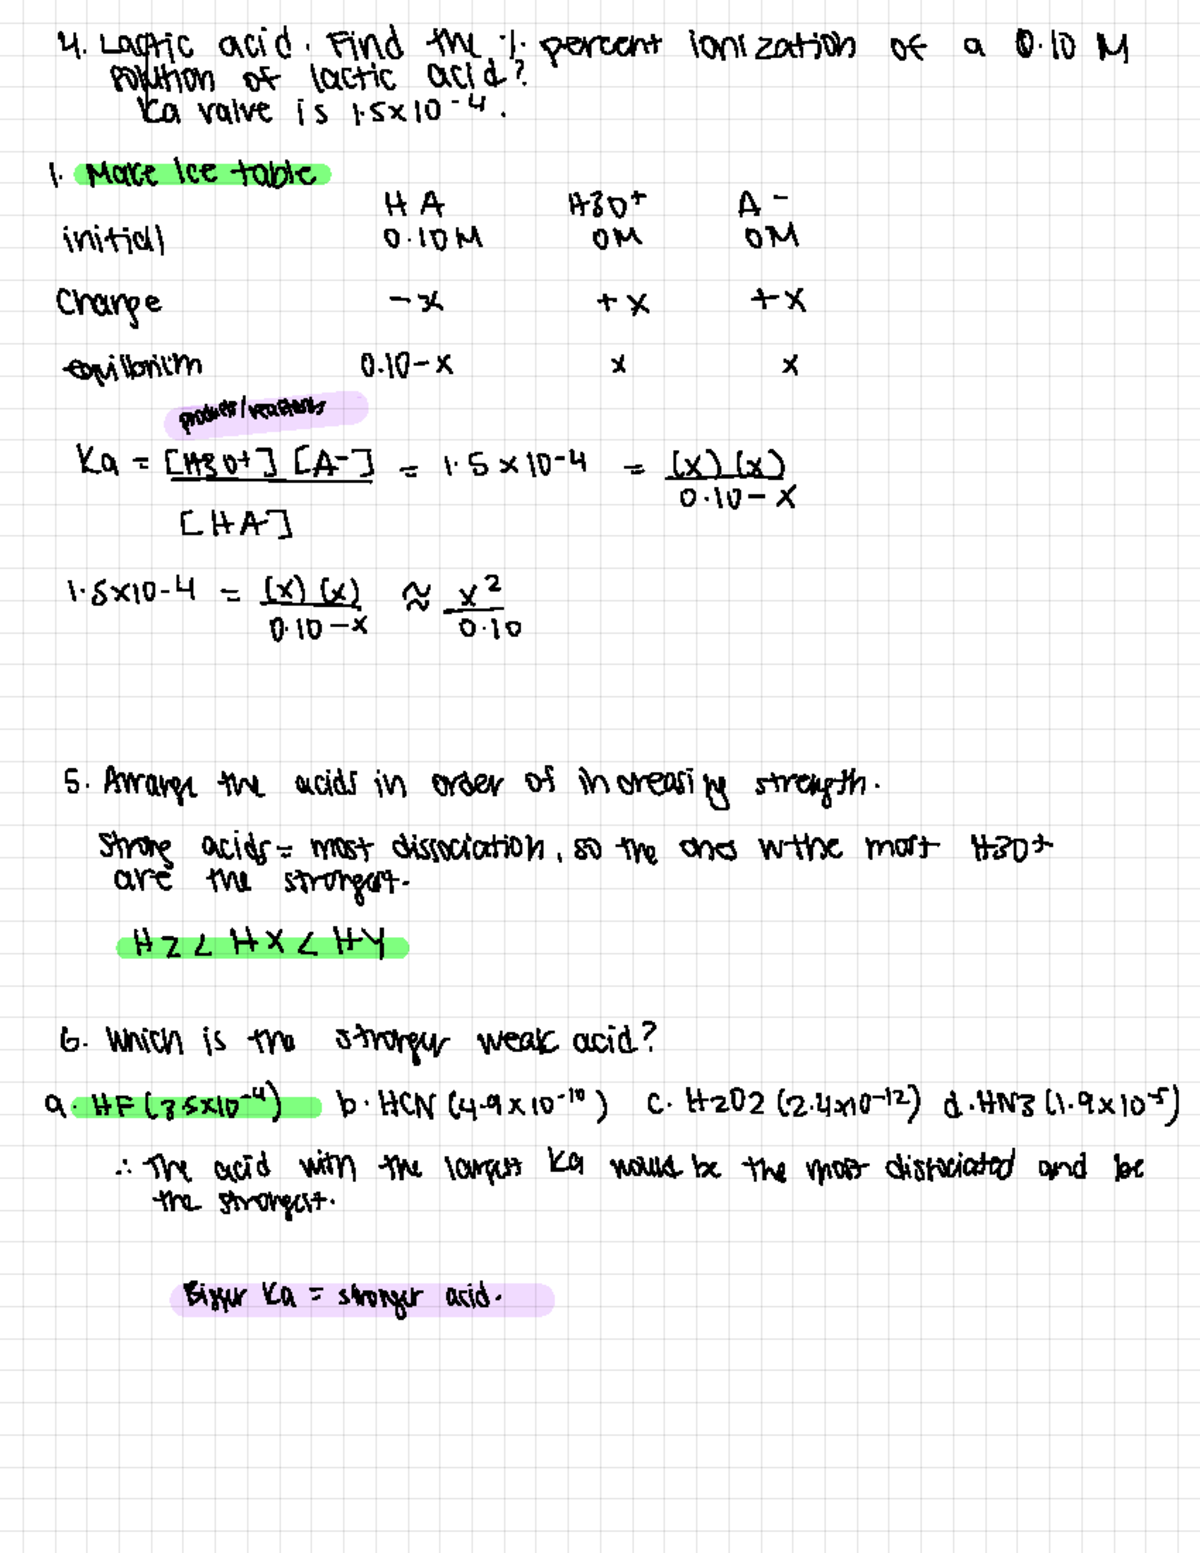 4. Lactic acid. Find the % percent ionization of a 0.10 M
solution of lactic acid?
Ka valve is 1.5x10-4.
1. Make Ice table
HA H3O+ A-
initiall 0.10M 0M 0M
Change -x +x +x
equilibrium 0.10-x x x
products/reactants
Ka = [H3O+] [A-] = 1.5x10-4 = (x)(x)
0.10-x
[HA]
1.5x10-4 = (x)(x) ≈ x²
0.10-x 0.10
5. Arrange the acids in order of increasing strength.
Strong acids = most dissociation, so the ones w the most H3O+
are the strongest.
HZ < HX < HY
6. Which is the stronger weak acid?
a. HF (3.5x10-4) b. HCN (4.9x10-10) c. H2O2 (2.4x10-12) d. HN3 (1.9x10-5)
∴ The acid with the largest Ka would be the most dissociated and be
the strongest.
Bigger Ka = stronger acid.